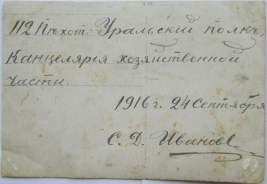 112 Пѣхот: Уральскій полкъ,
Канцелярія хозяйственной
части.
1916 г. 24 Сентября
С. Д. Иванов